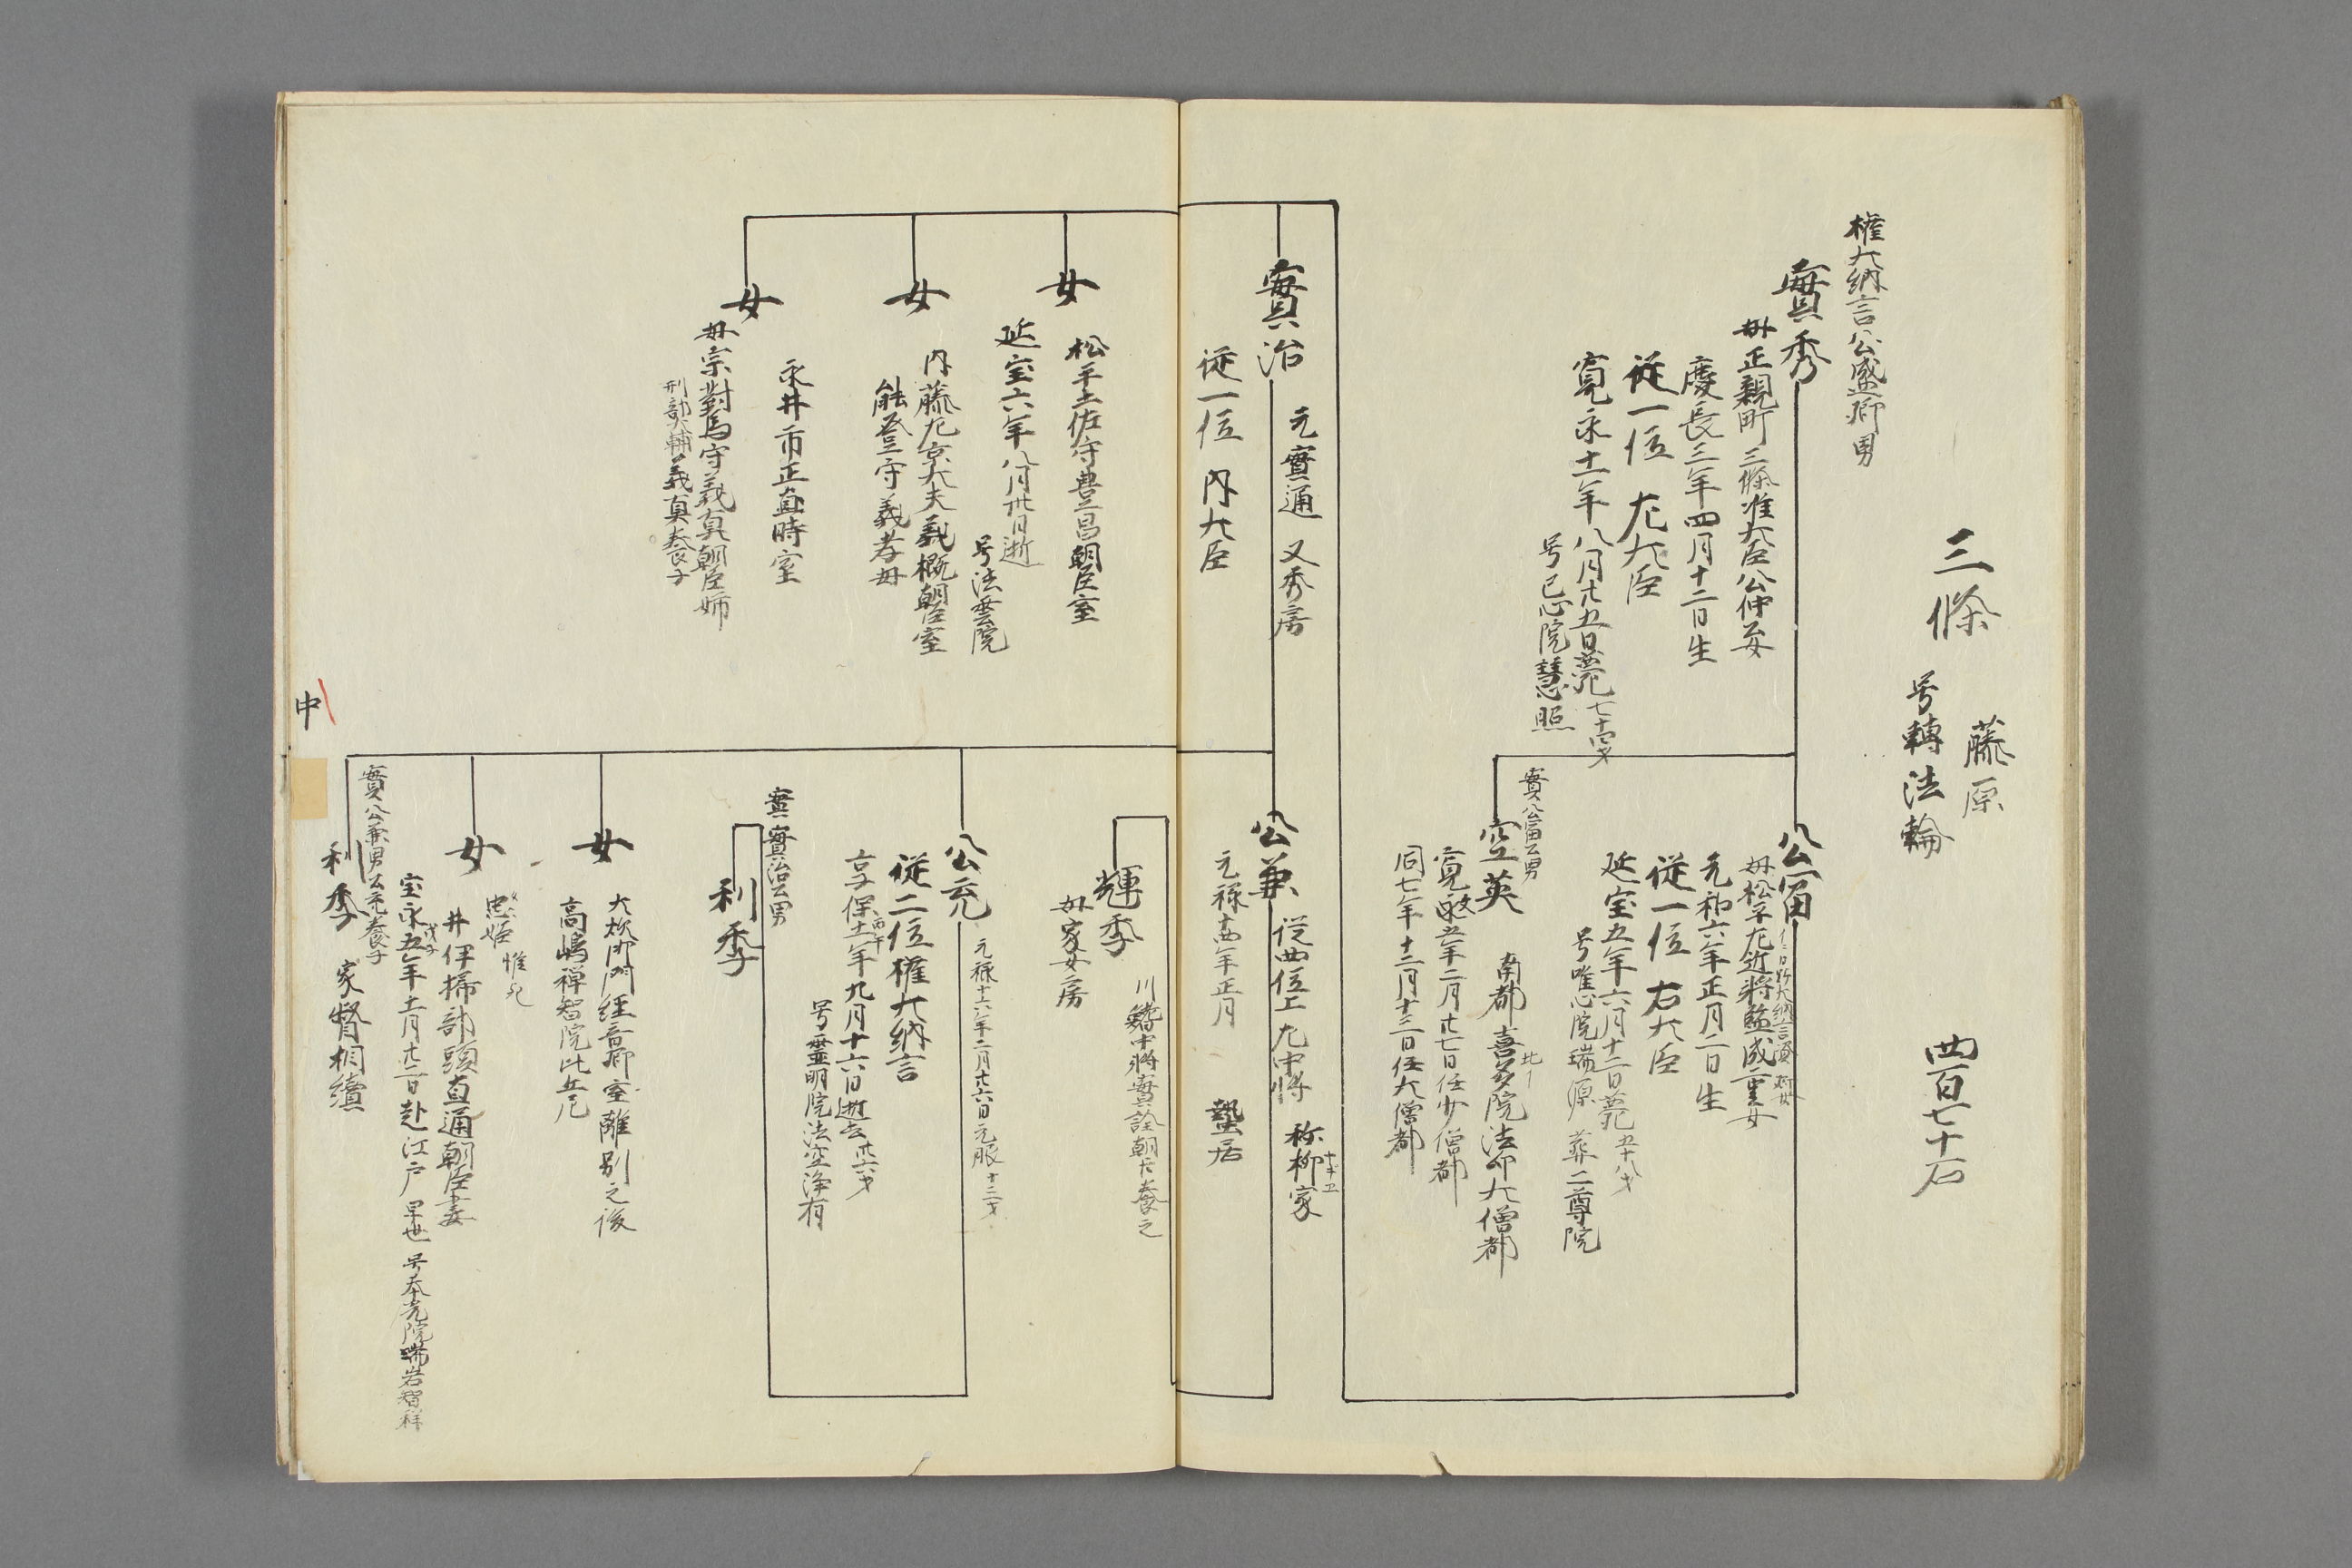 三條
藤原
号轉法輪
四百七十石
權大納言公盛卿男
實秀
母正親町三條准大臣公仲女
慶長三年四月十二日生
従一位 左大臣
寛永十一年八月廿五日薨七十四才
号已心院慧照
公富
母松平左近将監成重女
元和六年正月二日生
従一位 右大臣
延宝五年六月十二日薨五十八才
号唯心院瑞源 葬二尊院
實公富公男
空英
南都 喜多院法印大僧都
寛文五年二月廿七日任少僧都
同七年十二月十三日任大僧都
實治
元實通 又秀房
従一位 内大臣
公兼
従四位上 左中将 称柳家
元禄十四年正月 蟄居
輝季
川鰭中将實詮朝臣養之
母家女房
女
松平土佐守豊昌朝臣室
延宝六年八月廿日逝
号法雲院
女
内藤左京大夫義概朝臣室
能登守義孝母
女
永井市正直時室
母宗對馬守義真朝臣姉
刑部大輔義真養子
公充
元禄十六年二月廿六日元服十三才
従二位權大納言
享保十一年九月十六日逝去廿六才
号靈明院法空浄有
實實治公男
利季
女
大炊御門経音卿室離別之後
高嶋禅智院比丘尼
女
忠姫
井伊掃部頭直通朝臣妻
宝永五年十一月廿二日赴江戸 早世 号本光院瑞岩智祥
實公兼男公充養子
利季 家督相續
中